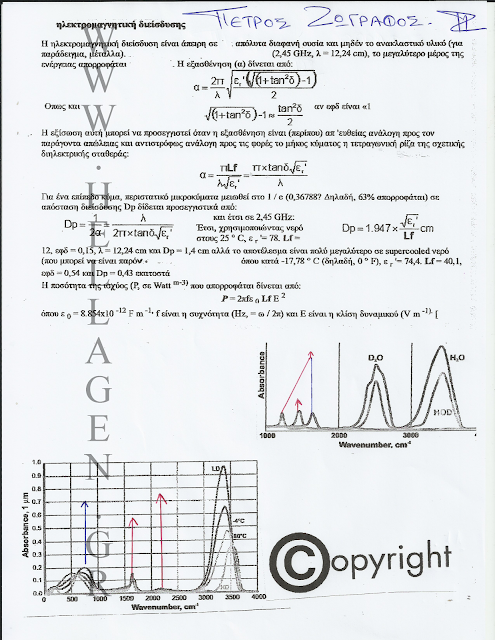 ηλεκτρομαγνητική διείσδυσης
ΠΕΤΡΟΣ ΖΩΓΡΑΦΟΣ.
Η ηλεκτρομαγνητική διείσδυση είναι άπειρη σε απόλυτα διαφανή ουσία και μηδέν το ανακλαστικό υλικό (για
παράδειγμα, μέταλλα). (2,45 GHz, λ = 12,24 cm), το μεγαλύτερο μέρος της
ενέργειας απορροφάται . Η εξασθένηση (α) δίνεται από:
α = 2π/λ √(εr'(√(1+tan²δ)-1)/2)
Όπως και √(1+tan²δ)-1 ≈ tan²δ/2 αν εφδ είναι «1
Η εξίσωση αυτή μπορεί να προσεγγιστεί όταν η εξασθένηση είναι (περίπου) απ 'ευθείας ανάλογη προς τον
παράγοντα απώλειας και αντιστρόφως ανάλογη προς τις φορές το μήκος κύματος η τετραγωνική ρίζα της σχετικής
διηλεκτρικής σταθεράς:
α = πLf/λ√εr' = π×tanδ√εr'/λ
Για ένα επίπεδο κύμα, περιστατικό μικροκύματα μειωθεί στο 1 / e (0,36788? Δηλαδή, 63% απορροφάται) σε
απόσταση διείσδυσης Dp δίδεται προσεγγιστικά από:
Dp = 1/2α = λ/2π×tanδ√εr'
και έτσι σε 2,45 GHz:
Έτσι, χρησιμοποιώντας νερό
στους 25 ° C, ε r '= 78. Lf =
Dp = 1.947 × √εr'/Lf cm
12, εφδ = 0,15, λ = 12,24 cm και Dp = 1,4 cm αλλά το αποτέλεσμα είναι πολύ μεγαλύτερο σε supercooled νερό
(που μπορεί να είναι παρόν όπου κατά -17,78 ° C (δηλαδή, 0 ° F), ε r '= 74,4. Lf = 40,1,
εφδ = 0,54 και Dp = 0,43 εκατοστά
Η ποσότητα της ισχύος (P, σε Watt m-3) που απορροφάται δίνεται από:
P = 2πfε 0 Lf E 2
όπου ε 0 = 8.854x10 -12 F m -1, f είναι η συχνότητα (Hz, = ω / 2π) και E είναι η κλίση δυναμικού (V m -1). [
WWW.HELLAGEN.GR
Absorbance
D₂O
H₂O
HOD
1000 2000 3000
Wavenumber, cm-1
Absorbance, 1 μm
1.0
0.9
0.8
0.7
0.6
0.5
0.4
0.3
0.2
0.1
0.0
0 500 1000 1500 2000 2500 3000 3500 4000
Wavenumber, cm-1
-4°C
80°C
©opyright